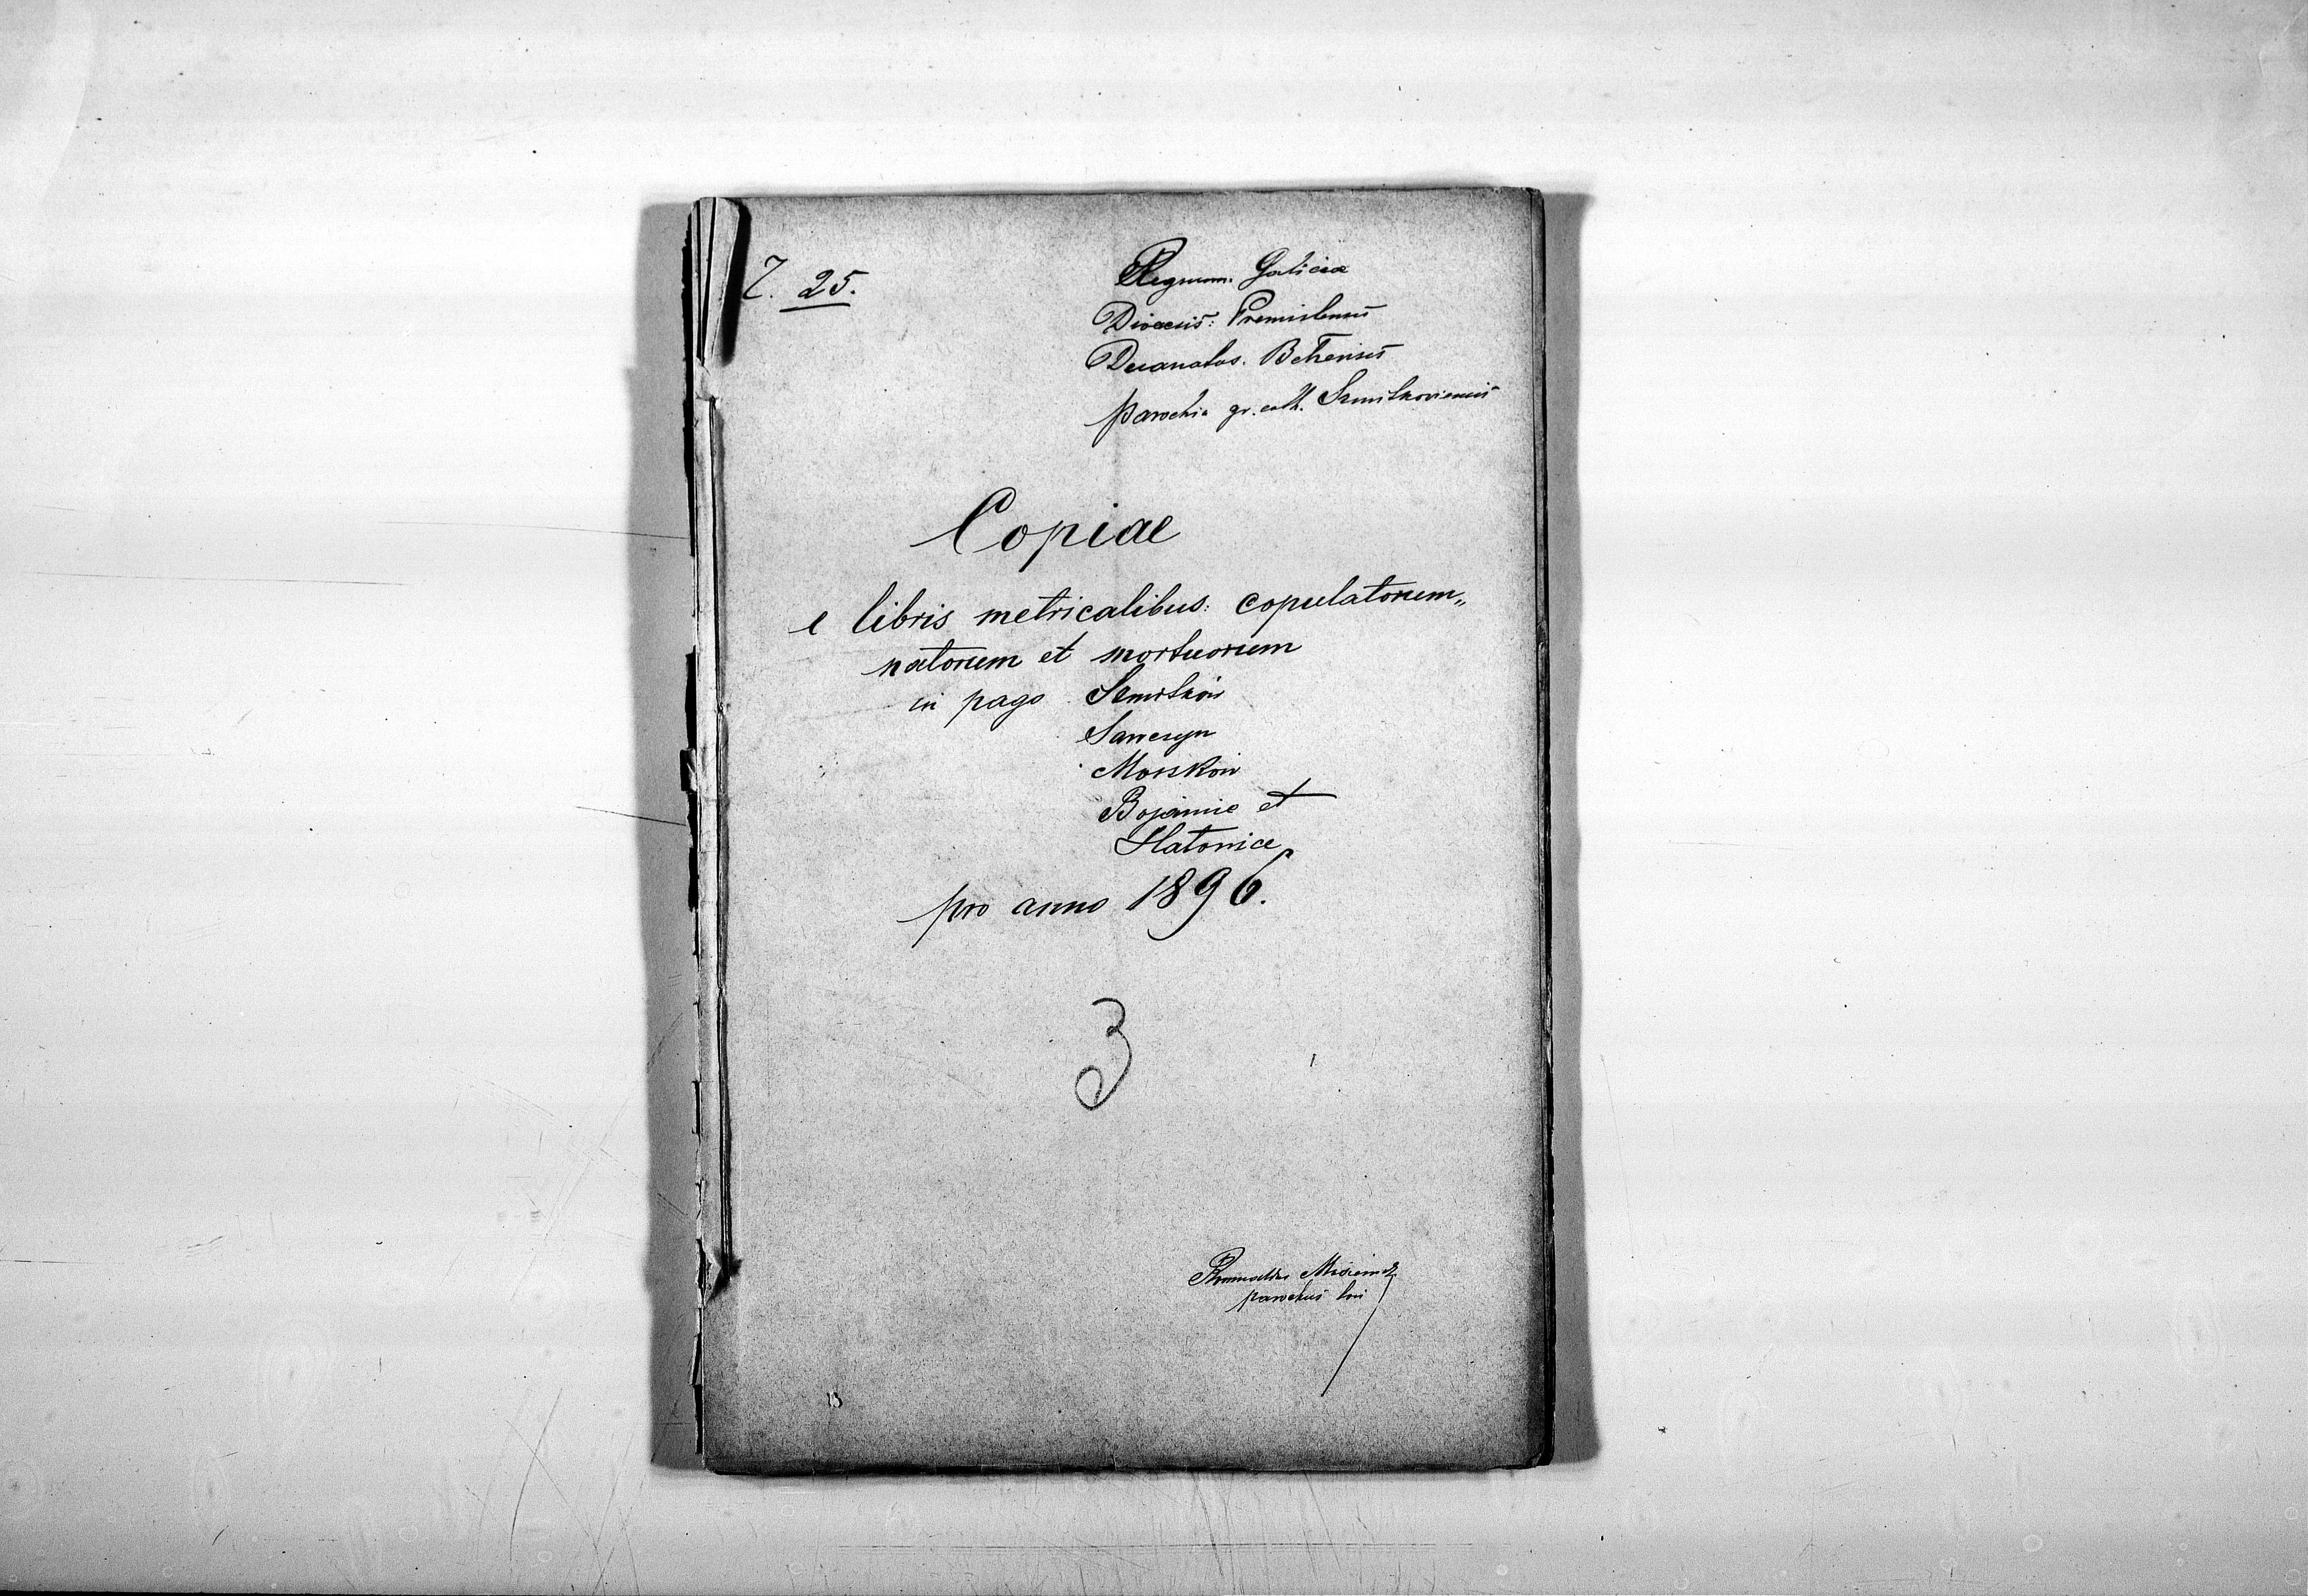 Z. 25.
Regnum: Galiciae
Diocesis: Premisliensis
Decanatus. Belzensis
Parochia gr. cath. Szmitkoviensis
Copiae
e libris metricalibus: copulatorum„
natorum et mortuorum
in pago Szmitków
Sawczyn
Moszków
Bojanice et
Hatowice
pro anno 1896.
3
Romualdus
parochus loci
13